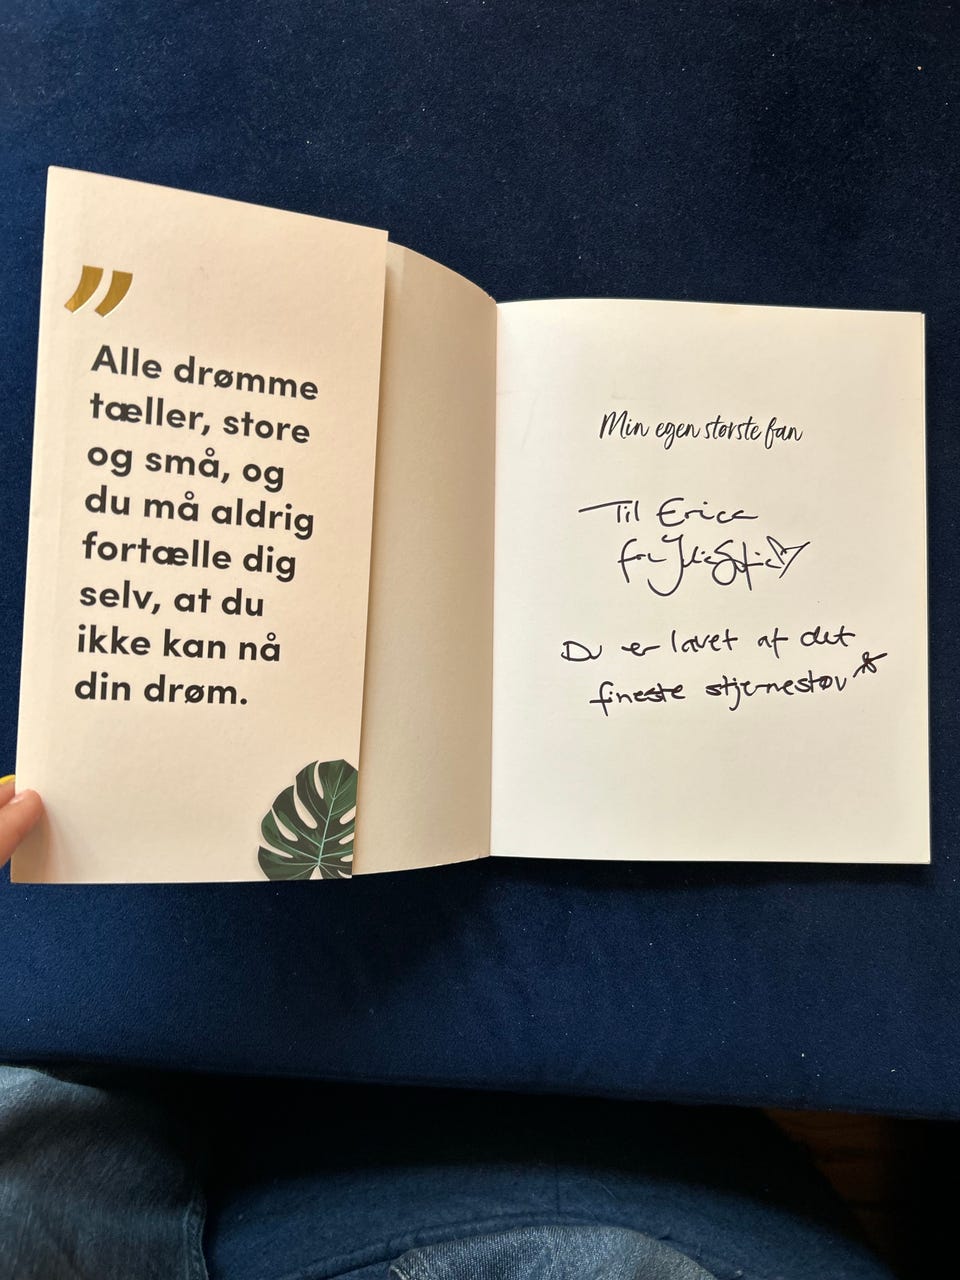 ”
Alle drømme
tæller, store
og små, og
du må aldrig
fortælle dig
selv, at du
ikke kan nå
din drøm.
Min egen største fan
Til Erica
fra JuliaSofia
Du er lavet af det
fineste stjernestøv